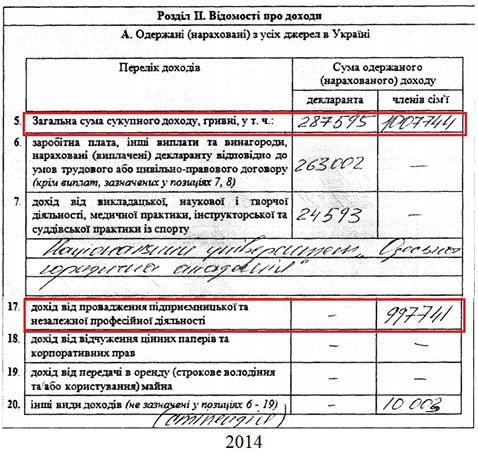 Розділ II. Відомості про доходи
А. Одержані (нараховані) з усіх джерел в Україні
Перелік доходів
Сума одержаного
(нарахованого) доходу
декларанта
членів сім'ї
5. Загальна сума сукупного доходу, гривні, у т. ч.: 287595 1007744
6. заробітна плата, інші виплати та винагороди,
нараховані (виплачені) декларанту відповідно до
умов трудового або цивільно-правового договору
(крім виплат, зазначених у позиціях 7, 8)
263002 —
7. дохід від викладацької, наукової і творчої
діяльності, медичної практики, інструкторської та
суддівської практики із спорту
24593 —
Національний університет „Одеська
юридична академія"
17. дохід від провадження підприємницької та
незалежної професійної діяльності
— 997741
18. дохід від відчуження цінних паперів та
корпоративних прав
— —
19. дохід від передачі в оренду (строкове володіння
та/або користування) майна
— —
20. інші види доходів (не зазначені у позиціях 6 - 19) — 10 003
(стипендія)
2014